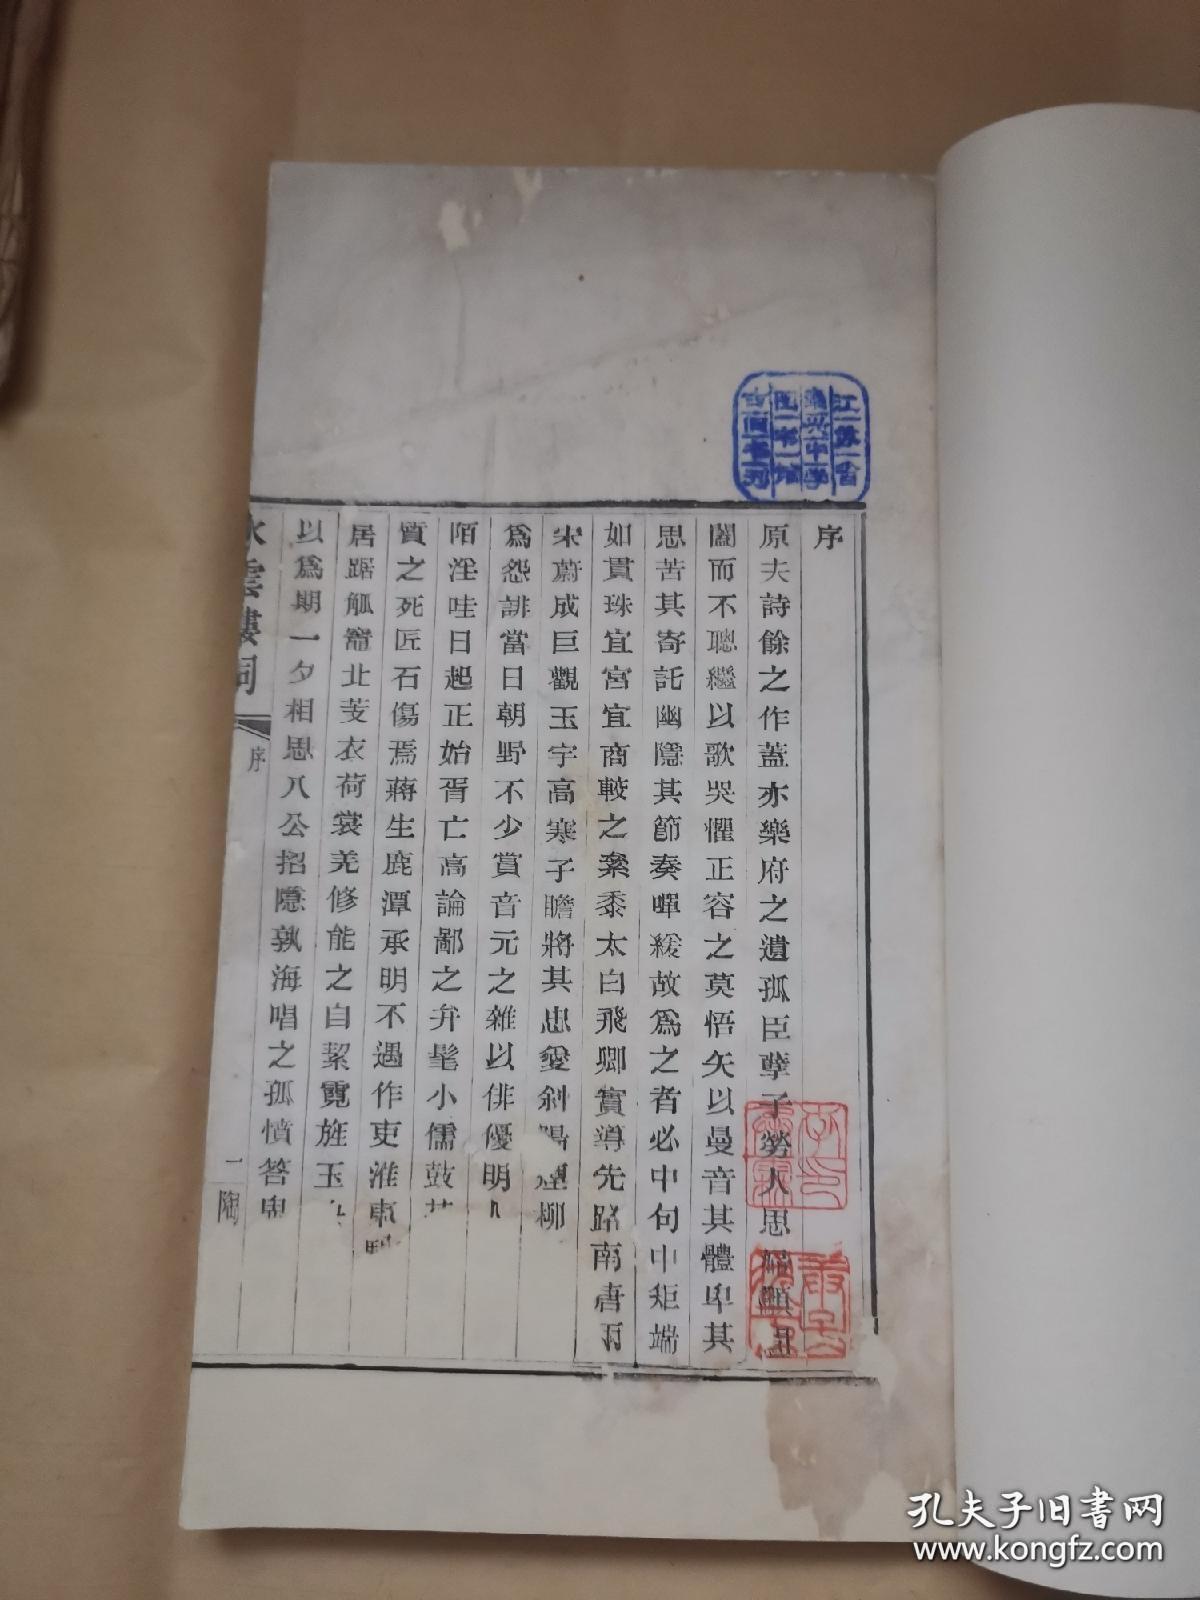 序
原夫詩餘之作蓋亦樂府之遺孤臣孽子勞人思婦籲
闔而不聰繼以歌哭懼正容之莫悟矢以曼音其體卑其
思苦其寄託幽隱其節奏嘽緩故爲之者必中句中矩端
如貫珠宜宮宜商較之絫黍太白飛卿實導先路南唐兩
宋蔚成巨觀玉宇高寒子瞻將其忠愛斜陽煙柳
爲怨誹當日朝野不少賞音元之雜以俳優明
陌淫哇日起正始胥亡高論鄙之弁髦小儒鼓
質之死匠石傷焉蔣生鹿潭承明不遇作吏淮東
居踞觚竈北芰衣荷裳羌修能之自絜霓旌玉
以爲期一夕相思八公招隱孰海唱之孤憤答
水雲樓詞
序
一
陶
江蘇省
中學
圖書館
孔夫子旧书网
www.kongfz.com